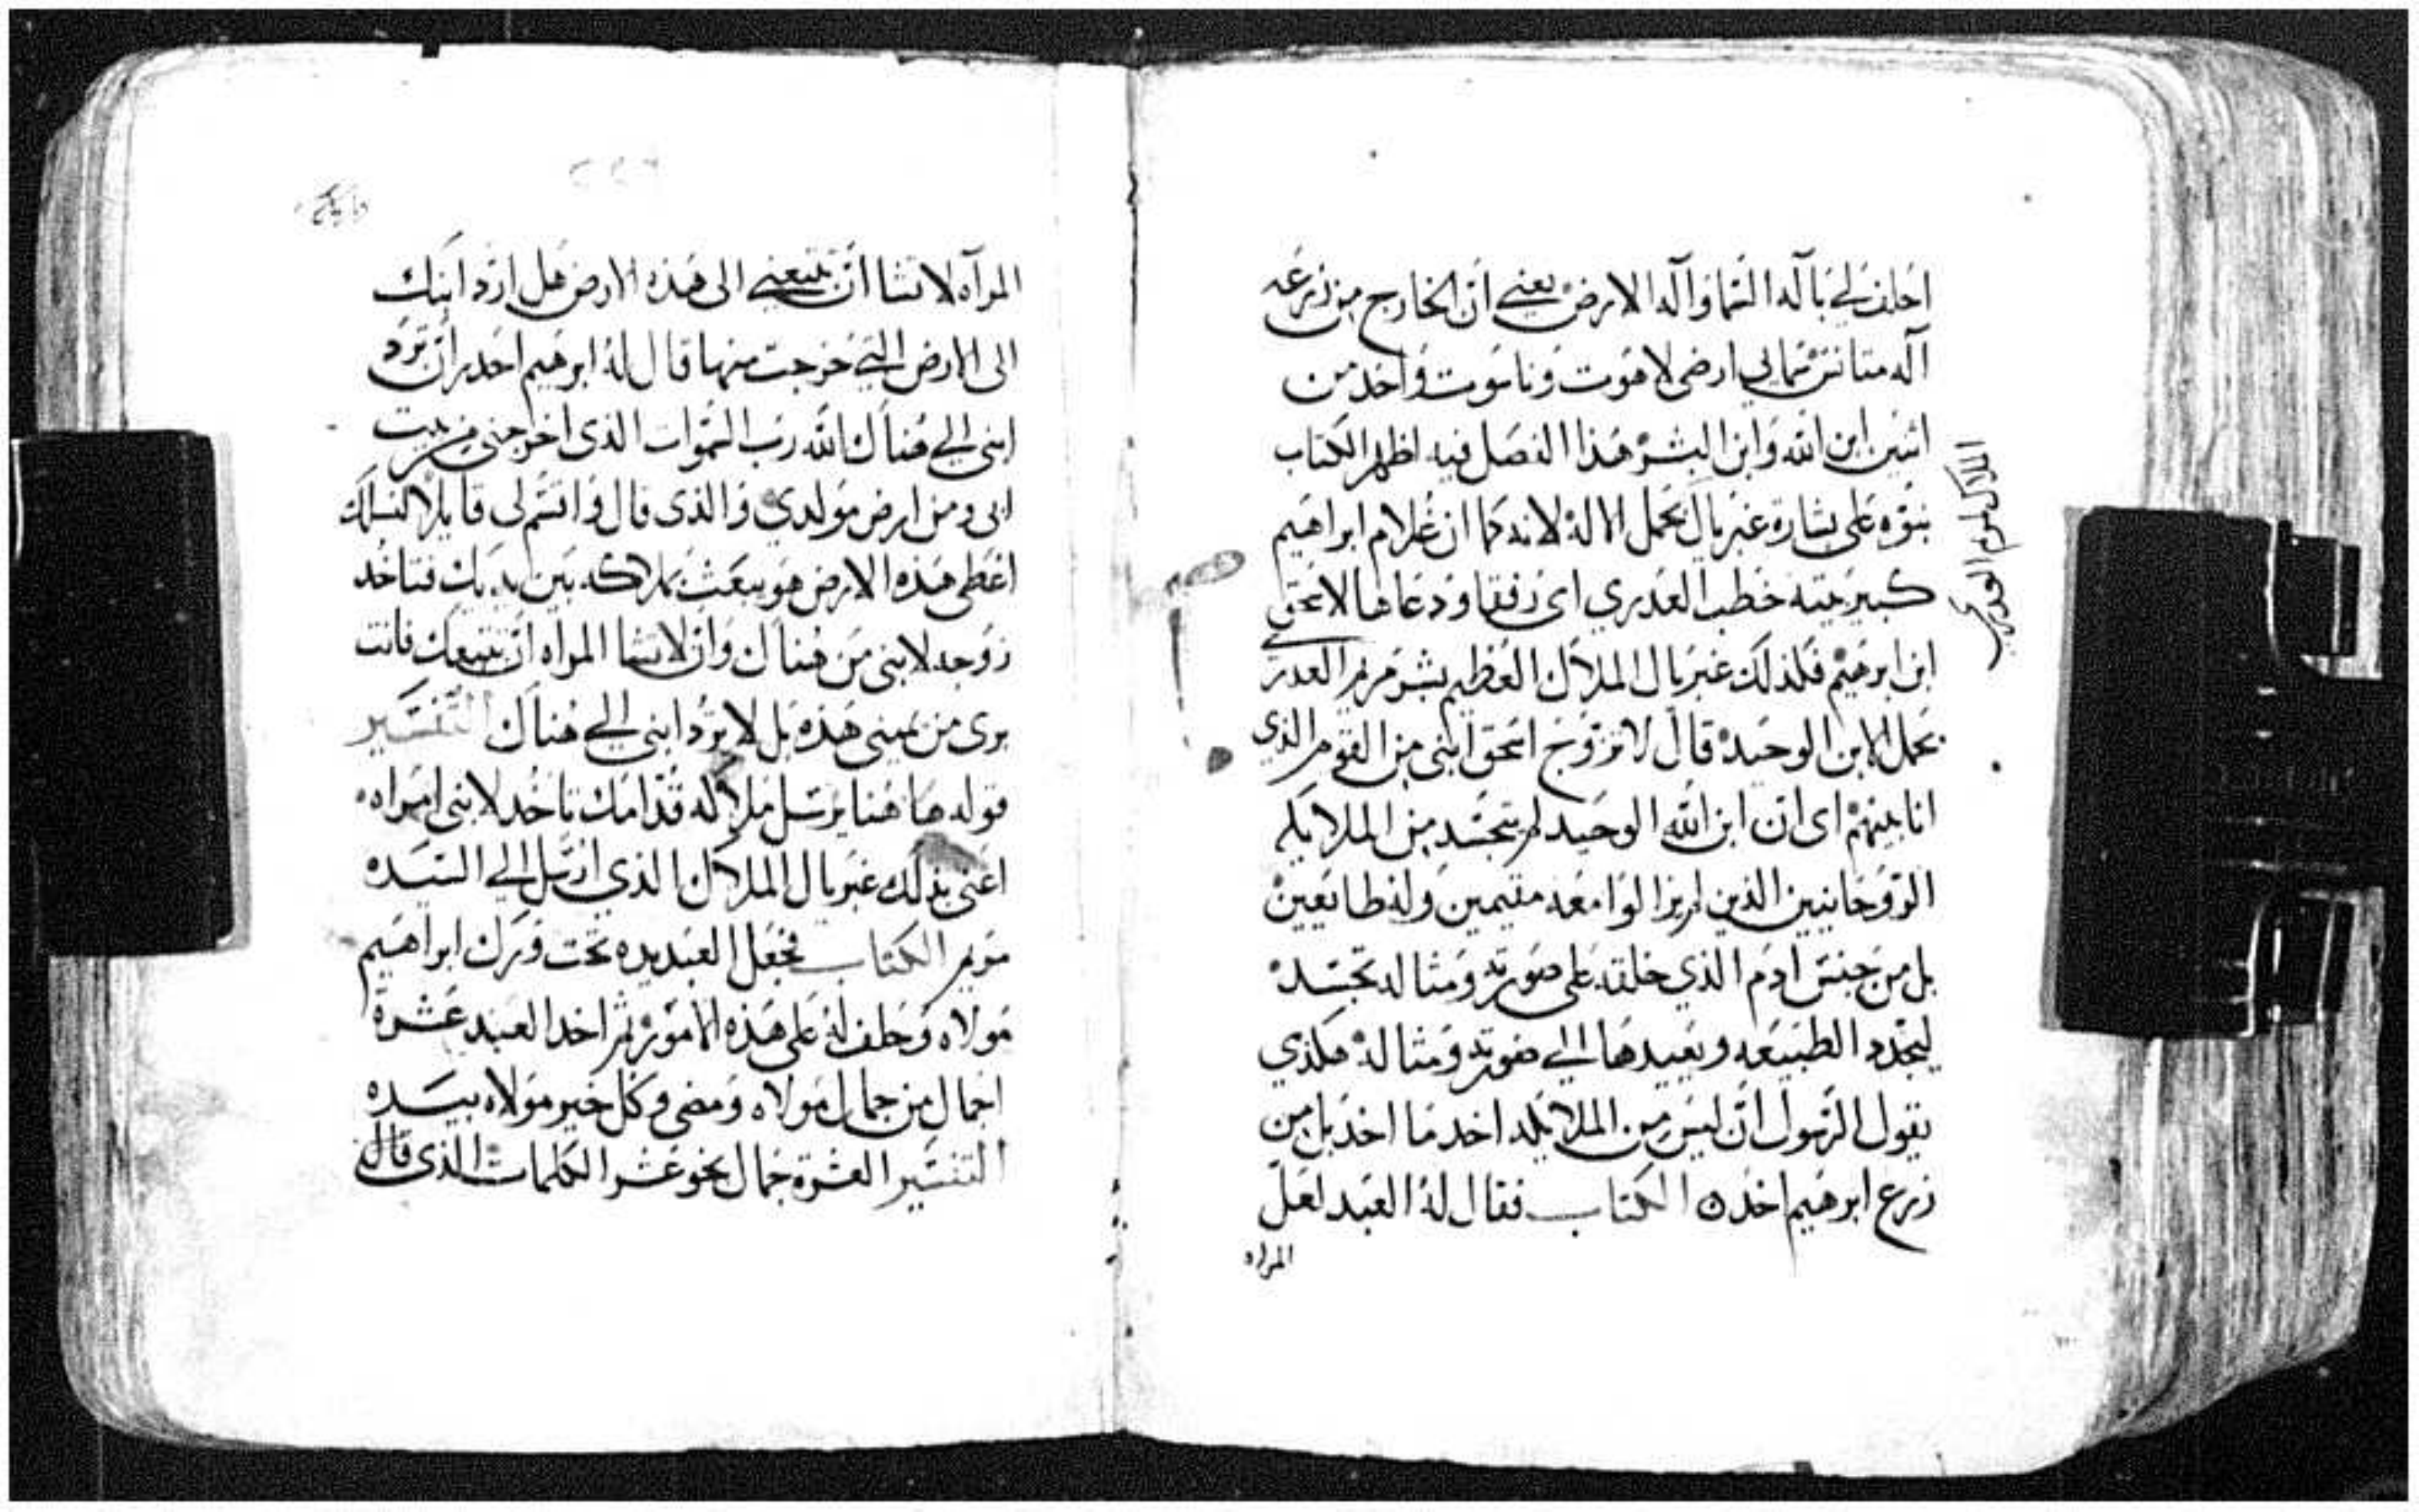 احلف لي باله السما واله الارض يعني ان الخارج من زرعه
اله متانس سمايي ارضي لاهوت وناسوت واحد من
اثنين ابن الله وابن البشر هذا الفصل فيه اظهر الكتاب
نبوه على بشارة غبريال بحمل الاله لانه كما ان غلام ابراهيم
كبير بيته خطب العدري اى رفقا ودعاها لاسحق
ابن ابرهيم فلذلك غبريال الملاك العظيم بشر مريم العدرى
بحمل الابن الوحيد قال لا تزوج اسحق ابنى من القوم الذي
انا بينهم اى ان ابن الله الوحيد لم يتجسد من الملايكه
الروحانيين الذين لم يزالوا معه مقيمين وله طايعين
بل من جنس ادم الذي خلقه على صورته ومثاله تجسد
ليجدد الطبيعه ويعيدها الي صورته ومثاله هكذي
يقول الرسول ان ليس من الملايكه اخد ما اخد بل من
زرع ابرهيم اخد الكتاب فقال له العبد لعل
المراه
المراه لا تشا ان تتبعني الى هذه الارض هل ارد ابنك
الى الارض التي خرجت منها قال له ابرهيم احدر ان ترد
ابنى الي هناك الله رب السموات الذى اخرجنى من بيت
ابى ومن ارض مولدي والذى قال واقسم لى قايلا لنسلك
اعطى هذه الارض هو يبعث بملاكه بين يديك فتاخد
زوجه لابنى من هناك وان لا تشا المراه ان تتبعك فانت
برى من يمينى هذه بل لا ترد ابنى الي هناك التفسير
قوله ها هنا يرسل ملاكه قدامك تاخد لابنى امراه
اعنى بذلك غبريال الملاك الذي ارسل الي السيده
مريم الكتاب فجعل العبد يده تحت ورك ابراهيم
مولاه وحلف له على هذه الامور ثم اخد العبد عشرة
اجمال من جمال مولاه ومضى وكل خير مولاه بيده
التفسير العشرة جمال نحو عشر الكلمات الذى قال